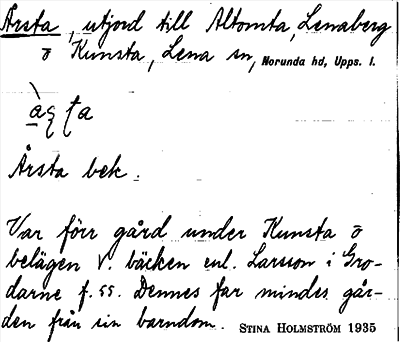 Årsta, utjord till Altomta, Lenaberg
o Kunsta, Lena sn, Norunda hd, Upps. l.
Årsta bek.
Var förr gård under Kunsta o
belägen v. bäcken enl. Larsson i Gro-
darne f. 55. Dennes far mindes går-
den från sin barndom. STINA HOLMSTRÖM 1935